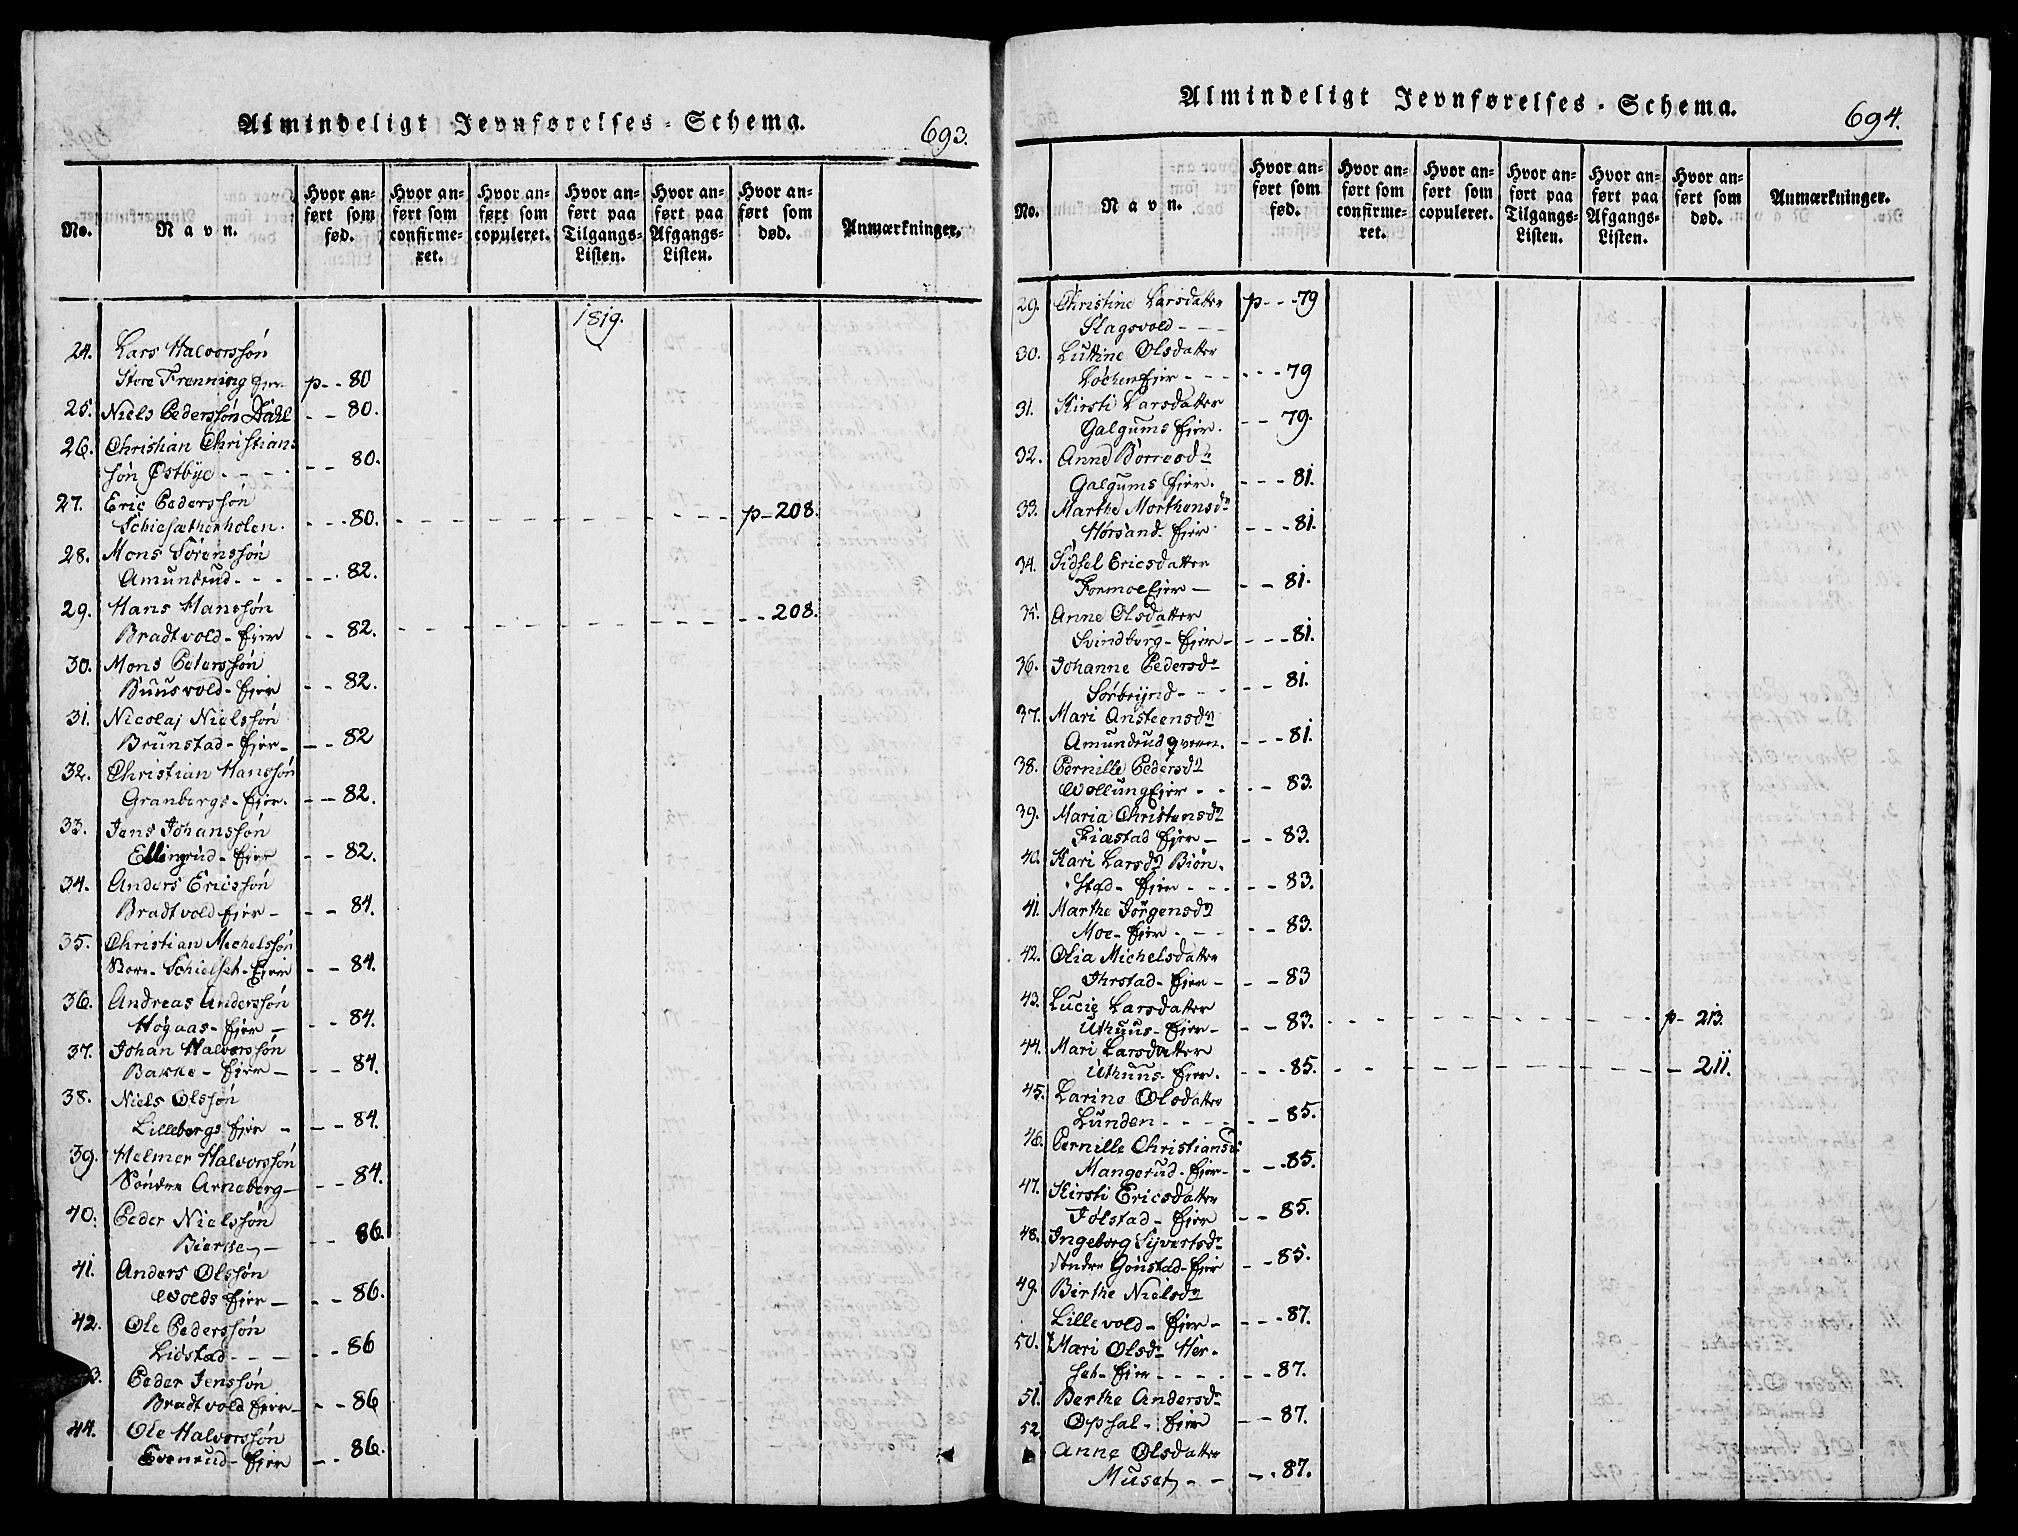 Almindeligt Jevnførelses-Schema.
693.
No.
Navn.
Hvor anført som født.
Hvor anført som confirmeret.
Hvor anført som copuleret.
Hvor anført paa Tilgangs-Listen.
Hvor anført paa Afgangs-Listen.
Hvor anført som død.
Anmærkninger.
1819.
24. Lars Halvorssøn
Store Frenning Eier p - - 80
25. Niels Pederssøn Dahl - - 80.
26. Christian Christians
søn Østbye - - - - - - 80.
27. Eric Pederssøn
Schiesætherholen. - - - 80. - - - - p - 208.
28. Mons Sørenssøn
Amundrud - - - - - - 82.
29. Hans Hanssøn
Bradtvold - Ejer - - 82. - - - - - - 208.
30. Mons Peterssøn
Buusvold - Ejer - - 82.
31. Nicolaj Nielssøn
Brunstad - Ejer - - - 82
32. Christian Hanssøn
Granbergs - Ejer. - - 82.
33. Jens Johanssøn
Ellingrud - Ejer - - 82.
34. Anders Ericssøn
Bradtvold Ejer - - - 84.
35. Christian Michelssøn
Schielset - Ejer - - 84.
36. Andreas Anderssøn
Høgaas - Ejer - - - 84.
37. Johan Halvorssøn
Bakke - Ejer - - - 84.
38. Niels Olssøn
Lillebergs Ejer - - - 84.
39. Helmer Halvorssøn
Søndre Arneberg - - - 84.
40. Peder Nielssøn
Bierke - - - 86.
41. Anders Olssøn
Wolds Ejer - - - 86.
42. Ole Pederssøn
Lidstad - - - - - 86
3. Peder Jenssøn
Bradtvold Ejer - - - 86
44. Ole Halvorssøn
Evenrud - Ejer - - 86.
Almindeligt Jevnførelses-Schema.
694.
No.
Navn.
Hvor anført som fød.
Hvor anført som confirmeret.
Hvor anført som copuleret.
Hvor anført paa Tilgangs-Listen.
Hvor anført paa Afgangs-Listen.
Hvor anført som død.
Anmærkninger.
29. Christine Larsdatter p - - - 79
Slagsvold - - -
30. Luttine Olsdatter
Løchen Ejer - - - - - - 79
31. Kirsti Larsdatter
Galgums Ejer. - - 79.
32. Anne Børresdr
Galgums Ejer. - - - 81.
33. Marthe Morthensdr
Hørsand - Ejer - - - 81.
34. Sidsel Ericsdatter
Formoe Ejer - - - 81.
35. Anne Olsdatter
Svindberg - Ejer - - - - 81.
36. Johanne Pedersdr
Sørbrynd - - - - - 81.
37. Mari Ansteensdr
Amundrud qvern. - - - 81.
38. Pernille Pedersdr
Wollung Ejer - - - - 83.
39. Maria Christensdr
Fiæstad Ejer - - - 83.
40. Kari Larsdr Biøn-
stad - Ejer - - - - - 83.
41. Marthe Jørgensdr
Moe - Ejer - - - - - 83.
42. Olia Michelsdatter
Ihrstad - Ejer - - - 83
43. Lucie Larsdatter
Uthuus - Ejer - - - 83. - - - - p - 213.
44. Mari Larsdatter
Uthuus - Ejer. - - - 85. - - - - - 211.
45. Larine Olsdatter
Lunden - - - - - - 85.
46. Pernille Christiansdr
Mangerud - Ejer - - - 85.
47. Kirsti Ericsdatter
Jølstad - Ejer - - 85.
48. Ingeborg Syvertsdr
søndre Gønstad - Ejer - - 85.
49. Birthe Nielsdr
Lillevold - Ejer - - - - 87.
50. Mari Olsdr Her-
set - Ejer - - - - - - 87.
51. Berthe Andersdr
Opsal - Ejer - - 87.
52.
Anne Olsdatter
Muset - - - - 87.